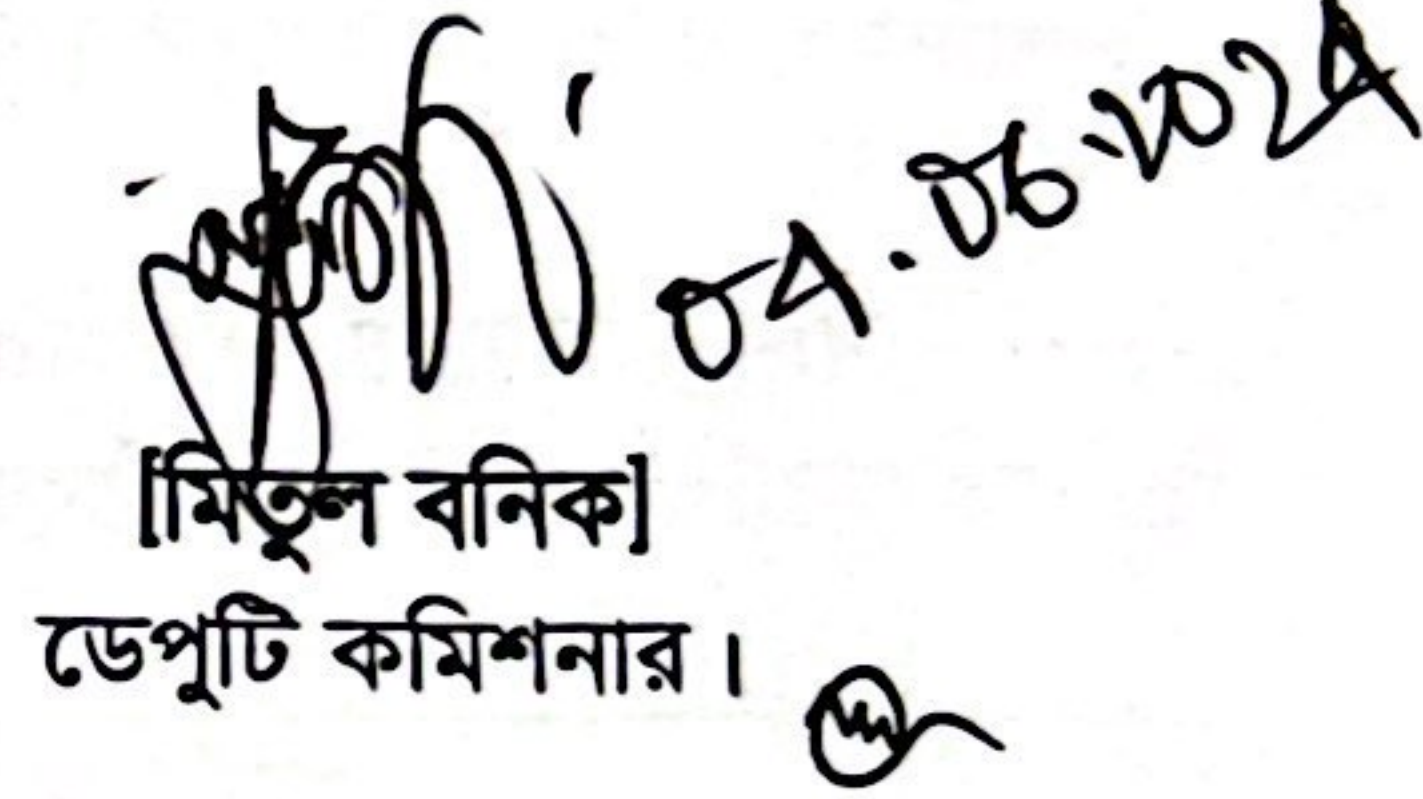 04.06.2024
[মিতুল বনিক]
ডেপুটি কমিশনার।